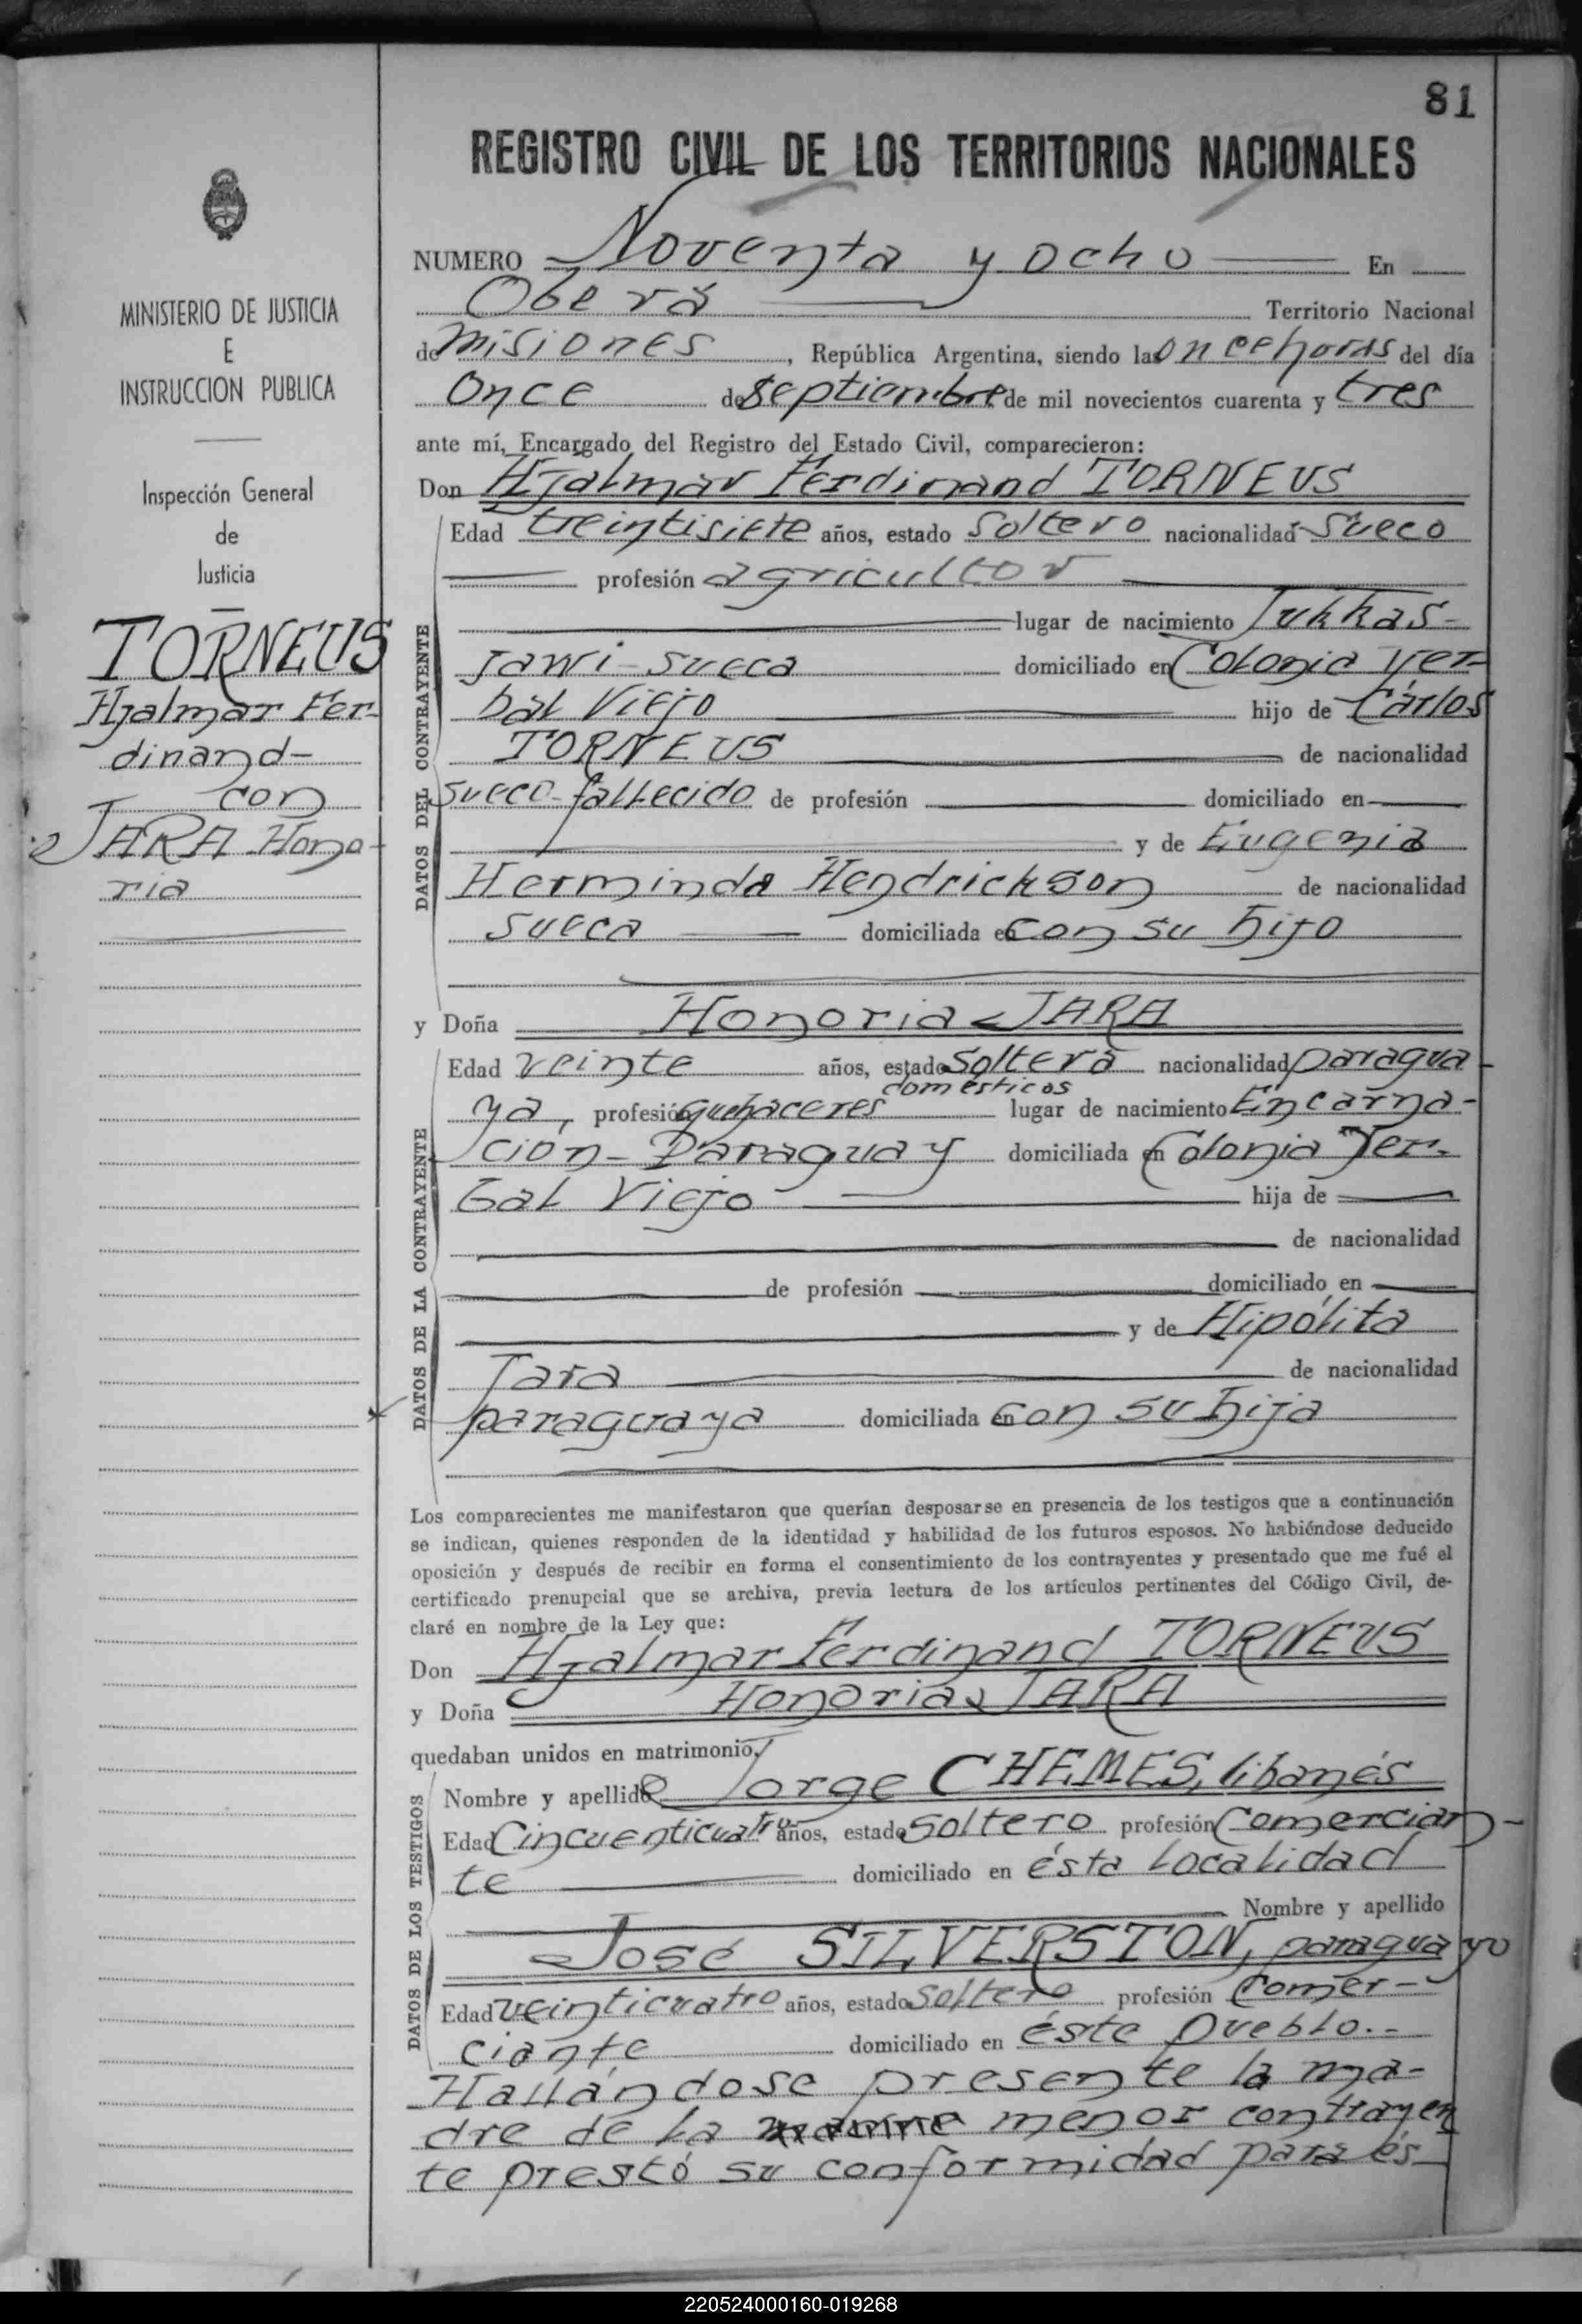 81
REGISTRO CIVIL DE LOS TERRITORIOS NACIONALES
MINISTERIO DE JUSTICIA
E
INSTRUCCION PUBLICA
Inspección General
de
Justicia
TORNEUS
Hjalmar Fer-
dinand-
con
JARA Hono-
ria
NUMERO Noventa y ocho En
Oberá Territorio Nacional
de Misiones, República Argentina, siendo las once horas del día
Once de Septiembre de mil novecientos cuarenta y tres
ante mí, Encargado del Registro del Estado Civil, comparecieron:
Don Hjalmar Ferdinand TORNEUS
DATOS DEL CONTRAYENTE
Edad treintisiete años, estado soltero nacionalidad sueco
profesión agricultor
lugar de nacimiento Jukkas-
jarvi-sueca domiciliado en Colonia Yer-
bal Viejo hijo de Cárlos
TORNEUS de nacionalidad
sueco-fallecido de profesión domiciliado en
y de Eugenia
Herminda Hendrickson de nacionalidad
sueca domiciliada en con su hijo
y Doña Honoria JARA
DATOS DE LA CONTRAYENTE
Edad veinte años, estado soltera nacionalidad paragua-
domésticos
ya, profesión quehaceres lugar de nacimiento Encarna-
ción-Paraguay domiciliada en Colonia Yer-
bal Viejo hija de
de nacionalidad
de profesión domiciliado en
y de Hipólita
Jara de nacionalidad
paraguaya domiciliada en con su hija
Los comparecientes me manifestaron que querían desposarse en presencia de los testigos que a continuación
se indican, quienes responden de la identidad y habilidad de los futuros esposos. No habiéndose deducido
oposición y después de recibir en forma el consentimiento de los contrayentes y presentado que me fué el
certificado prenupcial que se archiva, previa lectura de los artículos pertinentes del Código Civil, de-
claré en nombre de la Ley que:
Don Hjalmar Ferdinand TORNEUS
y Doña Honoria JARA
quedaban unidos en matrimonio.
DATOS DE LOS TESTIGOS
Nombre y apellido Jorge CHEMES, libanés
Edad Cincuenticuatro años, estado soltero profesión Comercian-
te domiciliado en ésta localidad
Nombre y apellido
José SILVERSTON, paraguayo
Edad veinticuatro años, estado soltero profesión Comer-
ciante domiciliado en éste pueblo.-
Hallándose presente la ma-
dre de la menor contrayen
te prestó su conformidad para és-
220524000160-019268